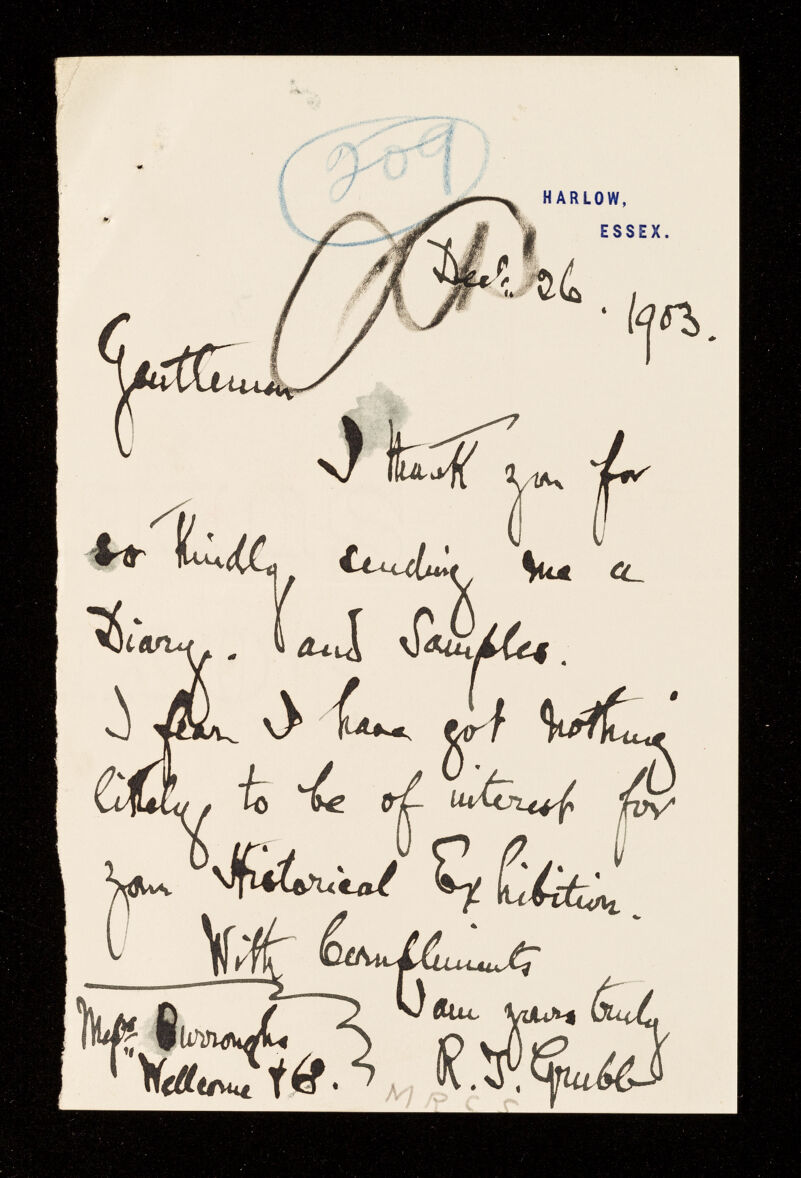 209
HARLOW,
ESSEX.
Decr. 26. 1903.
Gentlemen
I thank you for
so kindly sending me a
Diary. and Samples.
I fear I have got nothing
likely to be of interest for
your Historical Exhibition.
With Compliments
I am yours truly
R. T. Grubb
Messrs Burroughs
Wellcome & Co.
M R C S